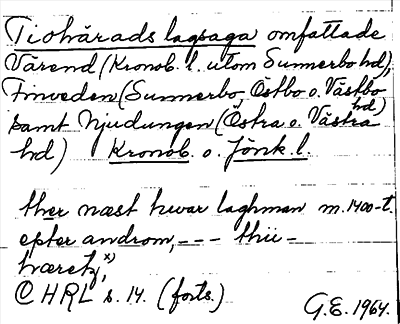 Tiohärads lagsaga omfattade
Värend (Kronob. l. utom Sunnerbo hd),
Finveden (Sunnerbo, Östbo o. Västbo hd)
samt Njudungen (Östra o. Västra
hd) Kronob. o. Jönk. l.
ther næst hwar laghman m. 1400-t.
epter androm, --- thii-
hæretz, x)
© HRL s. 14. (forts.)
G.E. 1964.